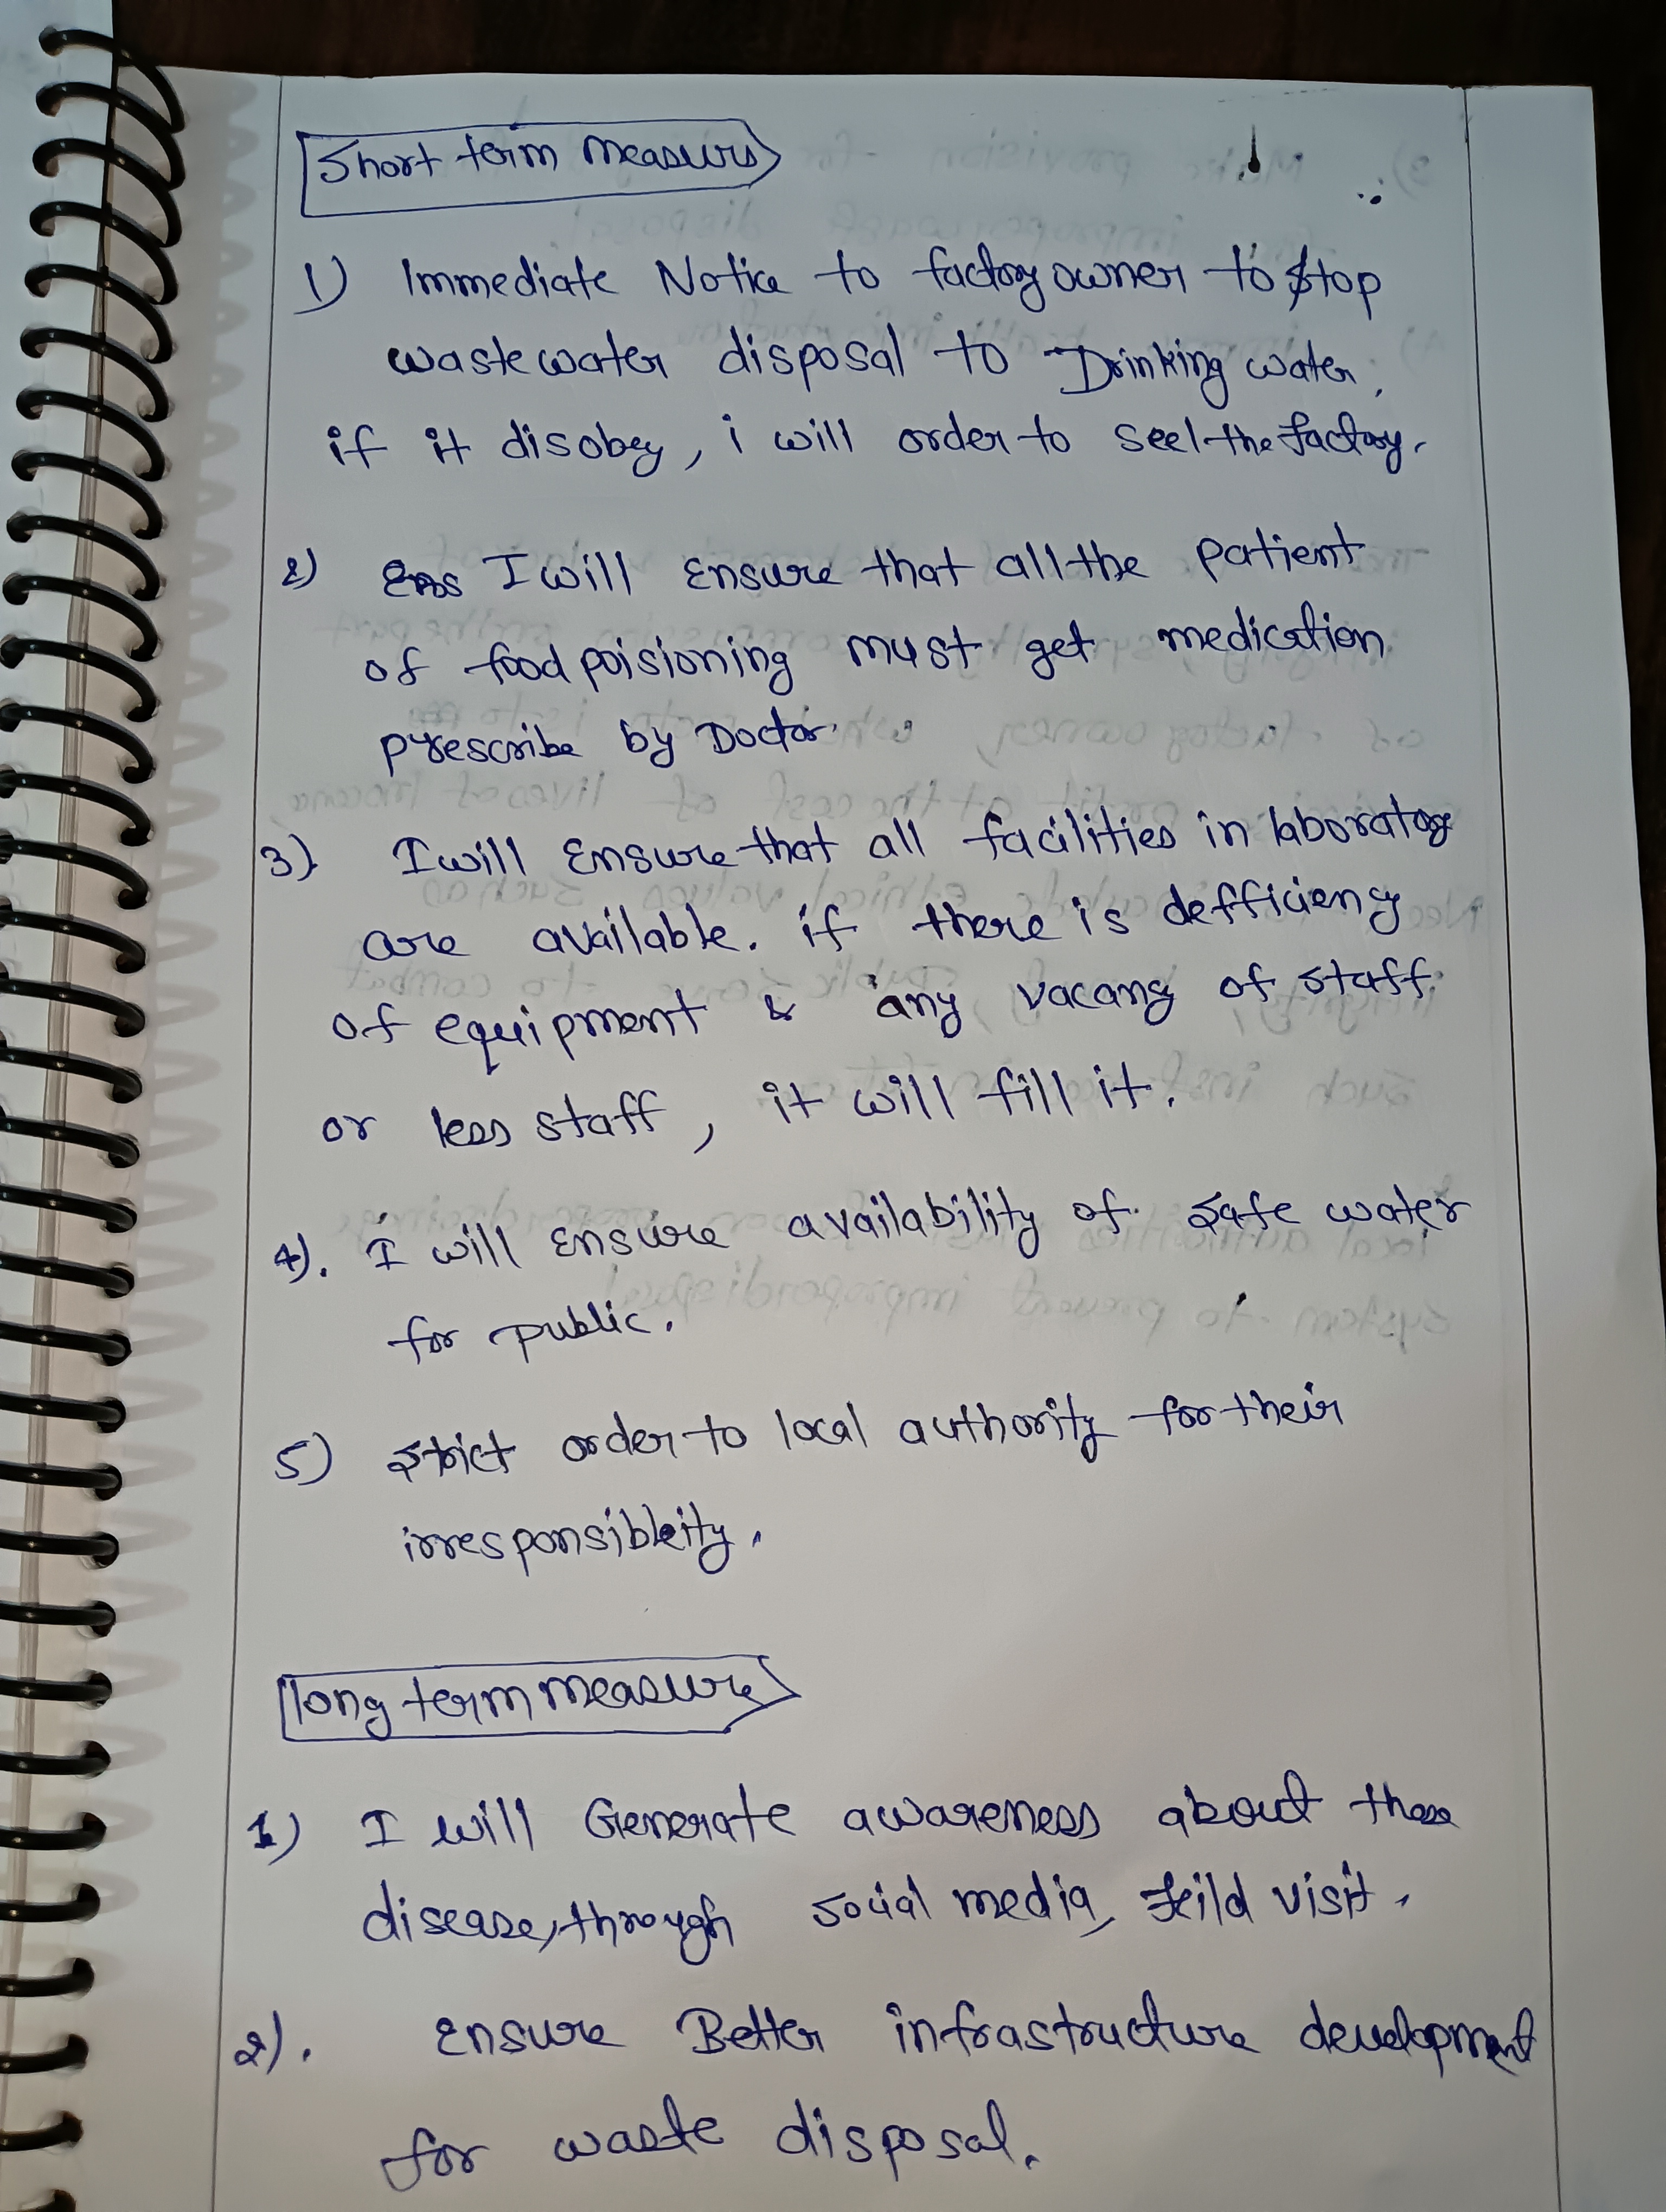 Short term measurs
1) Immediate Notice to factory owner to stop
waste water disposal to Drinking water.
if it disobey, i will order to seel the factory.
2) I will Ensure that all the patient
of food poisioning must get medication
prescribe by Doctor.
3) I will Ensure that all facilities in laboratory
are available. if there is defficiency
of equipment & any vacancy of staff
or less staff, it will fill it.
4). I will Ensure availability of safe water
for public.
5) strict order to local authority for their
irresponsibleity.
long term measure
1) I will Generate awareness about these
disease, through social media, feild visit.
2). Ensure Better infrastructure development
for waste disposal.